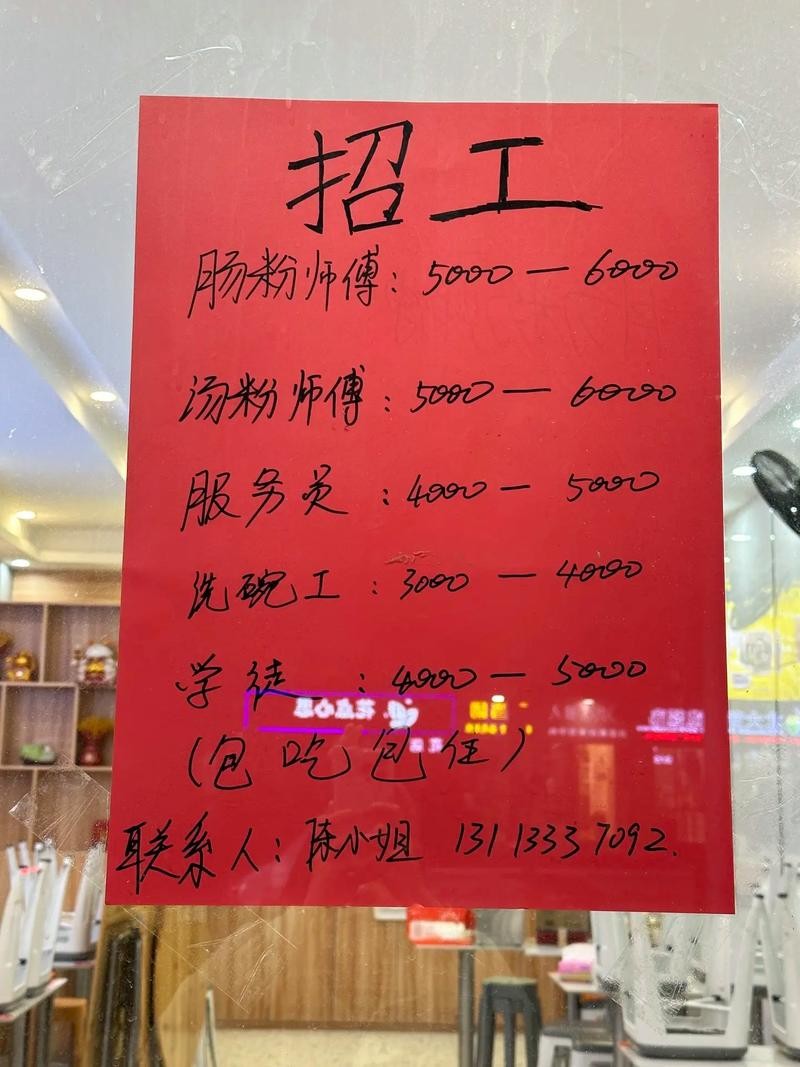 招工
肠粉师傅：5000 — 6000
汤粉师傅：5000 — 6000
服务员：4000 — 5000
洗碗工：3000 — 4000
学徒：4000 — 5000
(包吃包住)
联系人：陈小姐 13113337092.